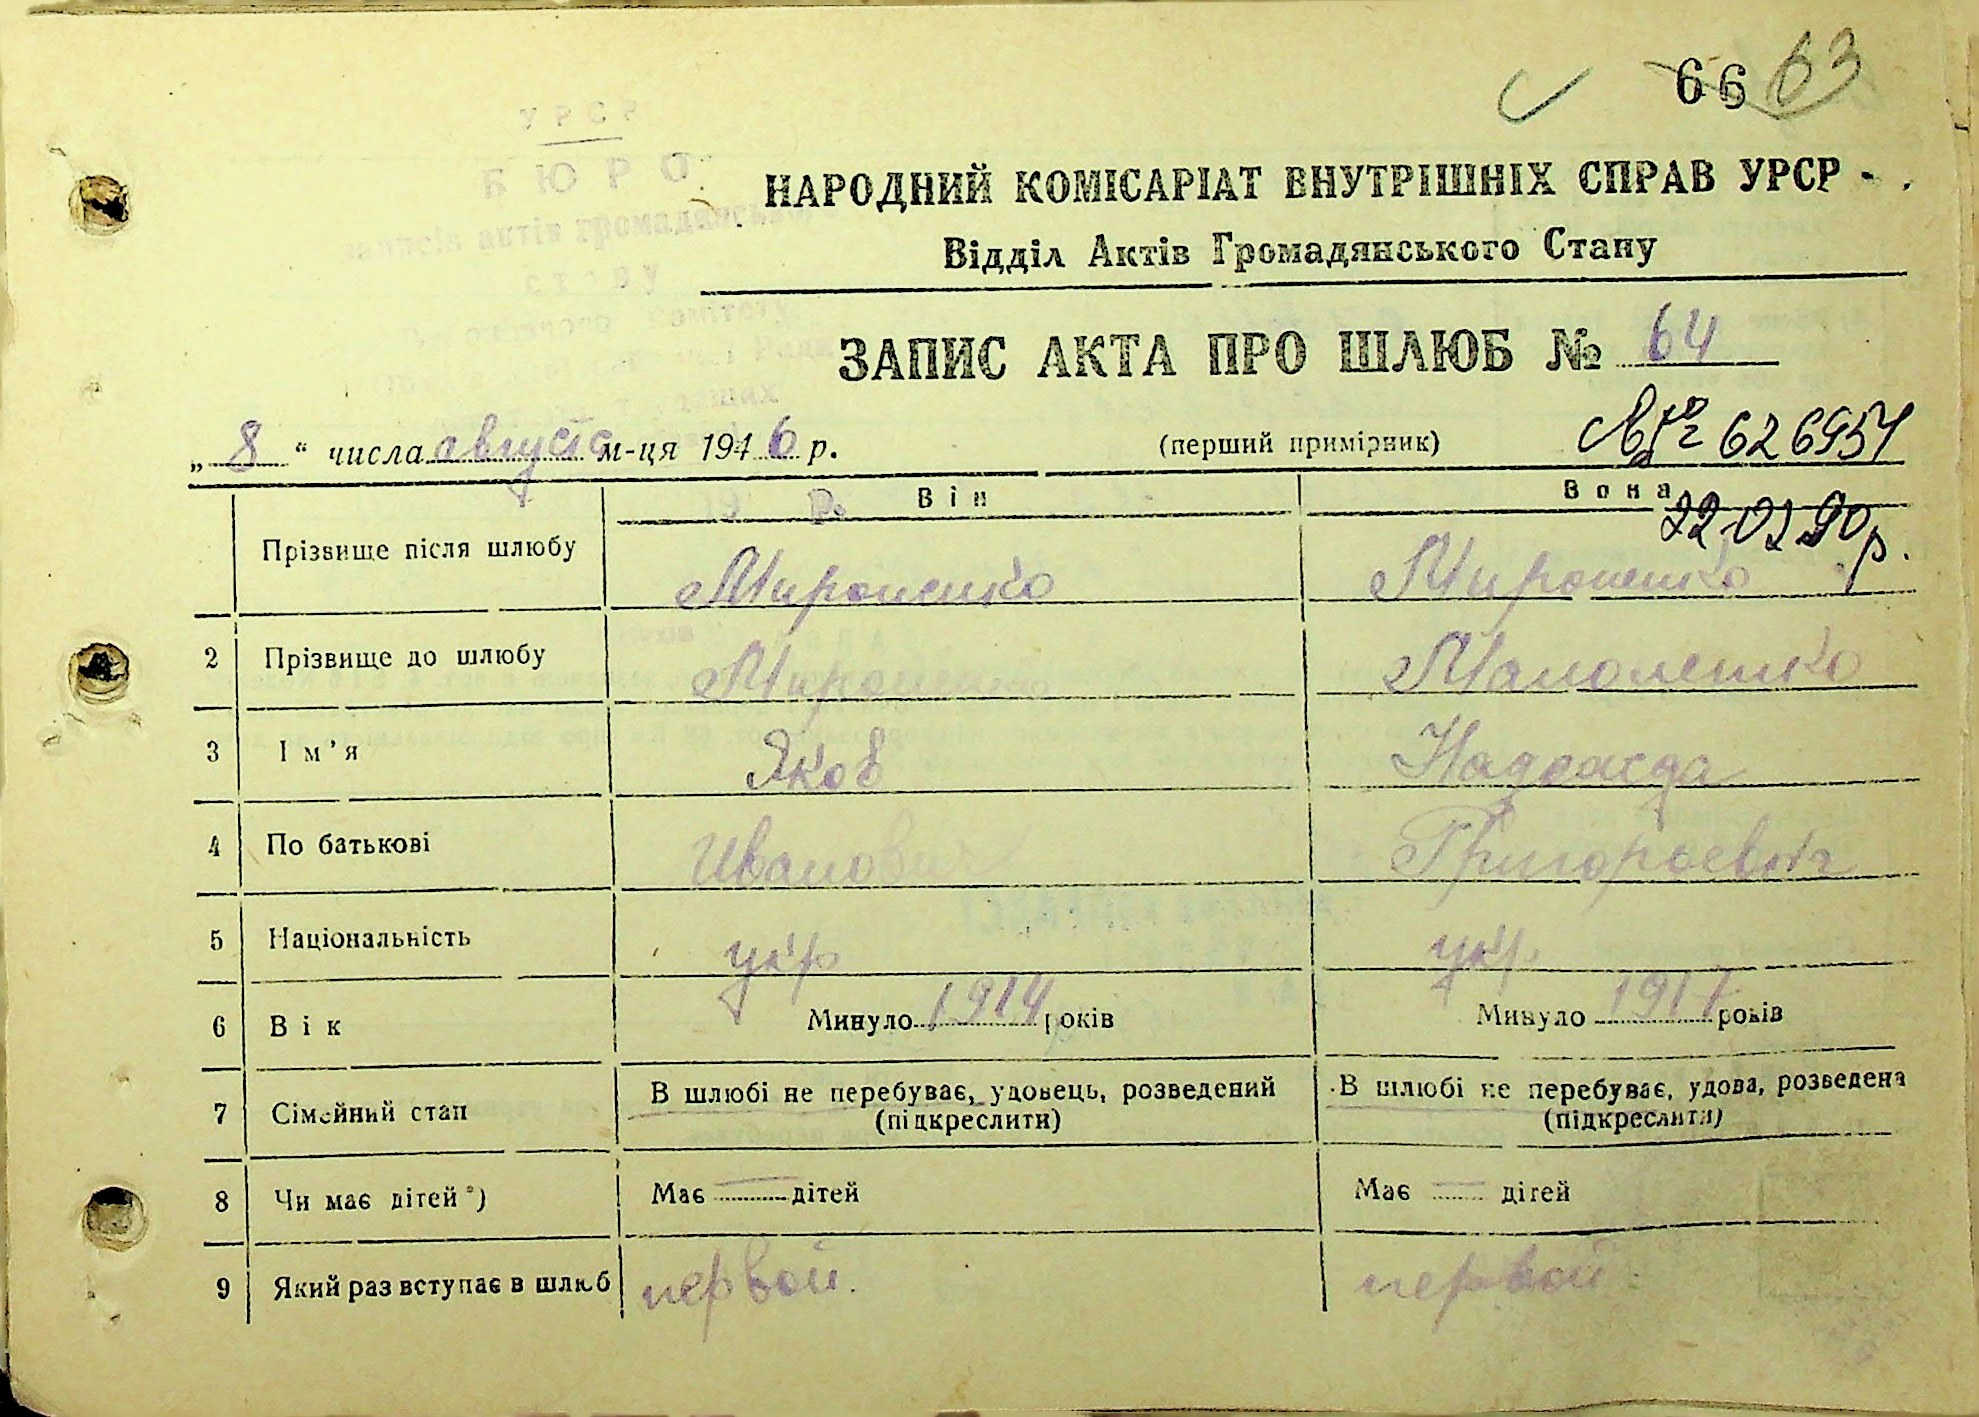 66 63
УРСР
БЮРО
записів актів громадянського
стану
НАРОДНИЙ КОМІСАРІАТ ВНУТРІШНІХ СПРАВ УРСР
Відділ Актів Громадянського Стану
ЗАПИС АКТА ПРО ШЛЮБ № 64
„ 8 “ числа августа м-ця 1946 р. (перший примірник) № 626957
Він Вона
22 02 90 р.
Прізвище після шлюбу Мироненко Мироненко
2 Прізвище до шлюбу Мироненко Маполенко
3 Ім’я Яков Надежда
4 По батькові Иванович Григорьевич
5 Національність укр укр.
6 Вік Минуло 1914 років Минуло 1917 років
7 Сімейний стан В шлюбі не перебуває, удовець, розведений (підкреслити) В шлюбі не перебуває, удова, розведена (підкреслити)
8 Чи має дітей*) Має — дітей Має — дітей
9 Який раз вступає в шлюб первой. первой.